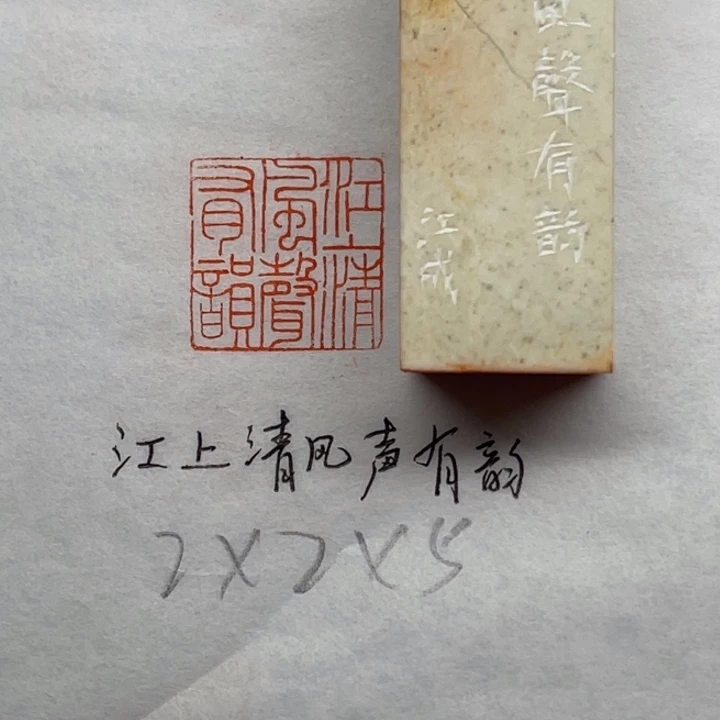 江上清
風聲
有韻
風聲有韵
江成
江上清风声有韵
2X2X5